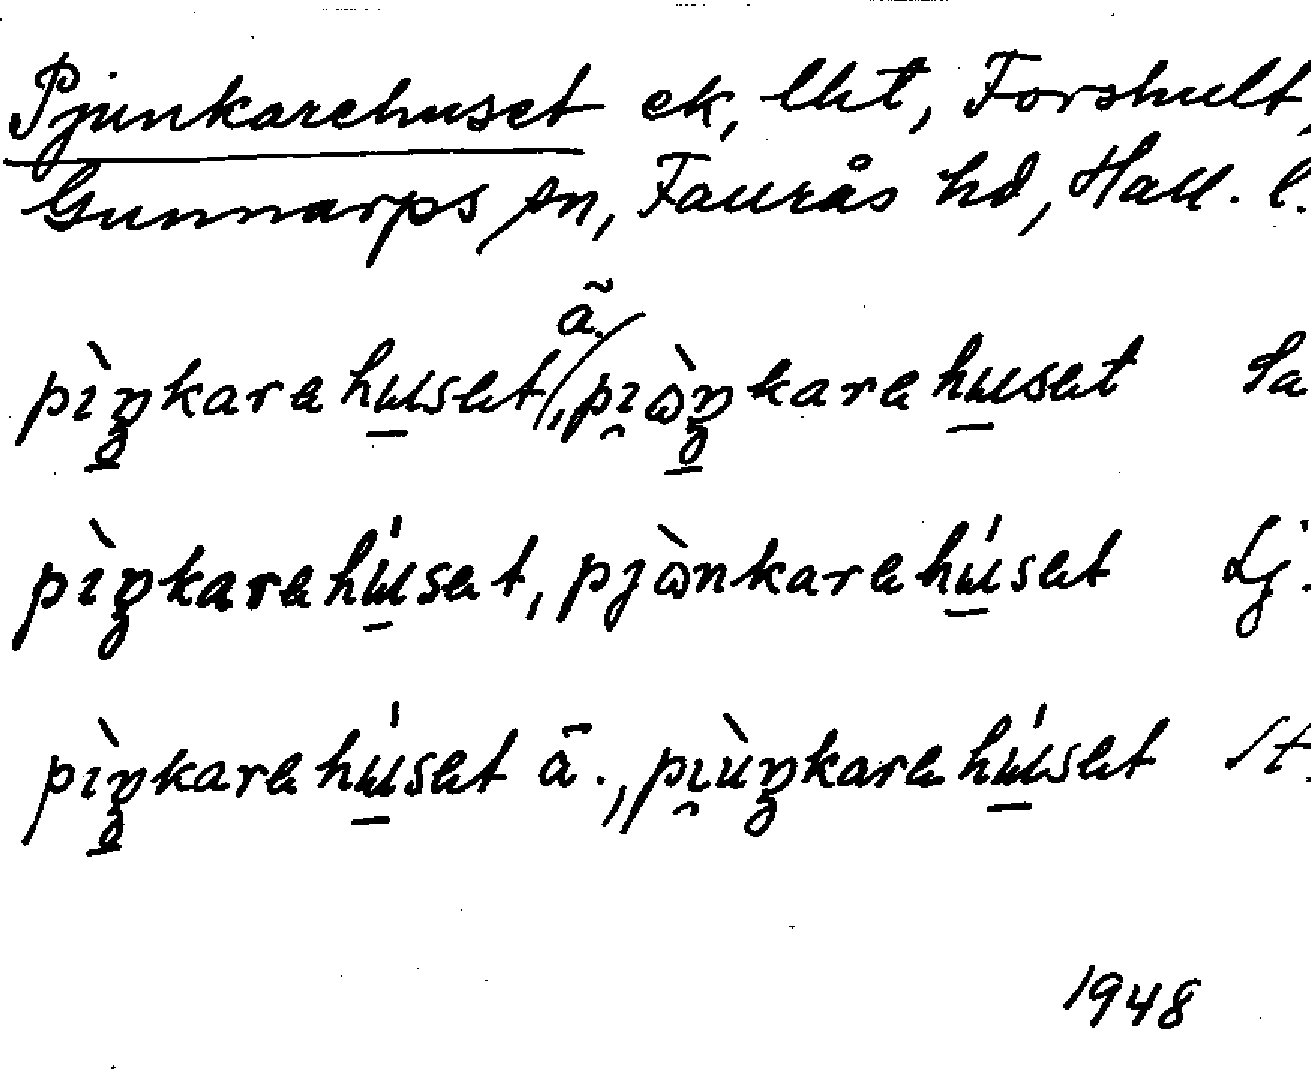 Pjunkarehuset ek, lht, Forshult,
Gunnarps sn, Faurås hd, Hall. l.
pìŋkarehuset ã., pi̯òŋkarehuset Sa
pìŋkarehúset, pjònkarehúset Lj.
pìŋkarehúset ā., pi̯ùŋkarehúset St.
1948